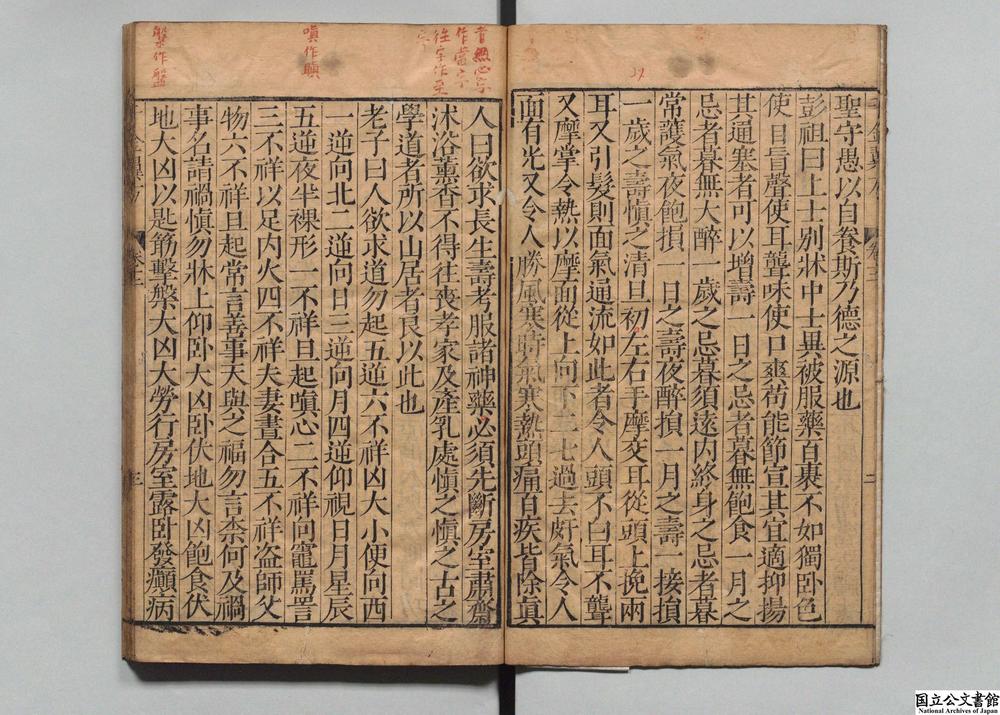 聖守愚以自養斯乃德之源也
彭祖曰上士別牀中士異被服藥百裹不如獨卧色
使目盲聲使耳聾味使口爽苟能節宣其宜適抑揚
其通塞者可以增壽一日之忌者暮無飽食一月之
忌者暮無大醉一歲之忌暮須遠内終身之忌者暮
常護氣夜飽損一日之壽夜醉損一月之壽一接損
一歲之壽慎之清旦初左右手摩交耳從頭上挽兩
耳又引髮則面氣通流如此者令人頭不白耳不聾
又摩掌令熱以摩面從上向下二七過去皯氣令人
面有光又令人勝風寒時氣寒熱頭痛百疾皆除真
二
人曰欲求長生壽考服諸神藥必須先斷房室肅齋
沐浴薰香不得往喪孝家及產乳處慎之慎之古之
學道者所以山居者良以此也
老子曰人欲求道勿起五逆六不祥凶大小便向西
一逆向北二逆向日三逆向月四逆仰視日月星辰
五逆夜半裸形一不祥旦起嗔心二不祥向竈罵詈
三不祥以足内火四不祥夫妻晝合五不祥盗師父
物六不祥旦起常言善事天與之福勿言柰何及禍
事名請禍慎勿牀上仰卧大凶卧伏地大凶飽食伏
地大凶以匙筯擊槃大凶大勞行房室露卧發癲病
三
嗔作瞋
槃作盤
国立公文書館
National Archives of Japan